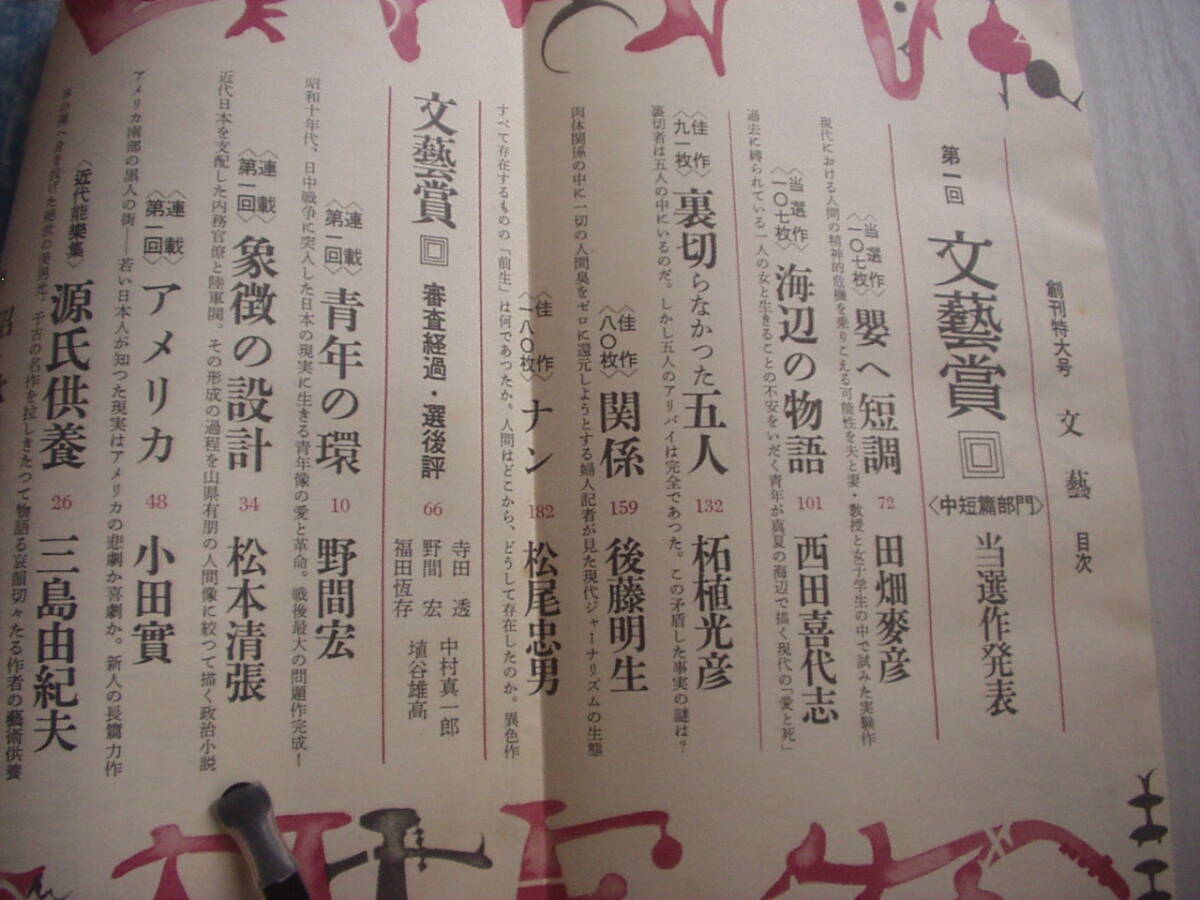 創刊特大号 文藝 目次
第一回 文藝賞 〈中短篇部門〉 当選作発表
〈当選作 一〇七枚〉 嬰へ短調 72 田畑麥彦
現代における人間の精神的危機を乗りこえる可能性を夫と妻・教授と女子学生の中で試みた実験作
〈当選作 一〇七枚〉 海辺の物語 101 西田喜代志
過去に縛られている一人の女と生きることの不安をいだく青年が真夏の海辺で描く現代の「愛と死」
〈佳作 九一枚〉 裏切らなかった五人 132 柘植光彦
裏切者は五人の中にいるのだ。しかし五人のアリバイは完全であつた。この矛盾した事実の謎は?
〈佳作 八〇枚〉 関係 159 後藤明生
肉体関係の中に一切の人間臭をゼロに還元しようとする婦人記者が見た現代ジャーナリズムの生態
〈佳作 一八〇枚〉 ナン 182 松尾忠男
すべて存在するものの「前生」は何であつたか。人間はどこから、どうして存在したのか。異色作
文藝賞 審査経過・選後評 66
寺田透
野間宏
福田恆存
中村真一郎
埴谷雄高
〈連載 第一回〉 青年の環 10 野間宏
昭和十年代、日中戦争に突入した日本の現実に生きる青年像の愛と革命。戦後最大の問題作完成!
〈連載 第一回〉 象徴の設計 34 松本清張
近代日本を支配した内務官僚と陸軍閥。その形成の過程を山県有朋の人間像に絞つて描く政治小説
〈連載 第一回〉 アメリカ 48 小田實
アメリカ南部の黒人の街――若い日本人が知つた現実はアメリカの悲劇か喜劇か。新人の長篇力作
〈近代能樂集〉 源氏供養 26 三島由紀夫
を投げた絶世の美男光。千古の名作を拉しきたつて物語る哀韻切々たる作者の藝術供養